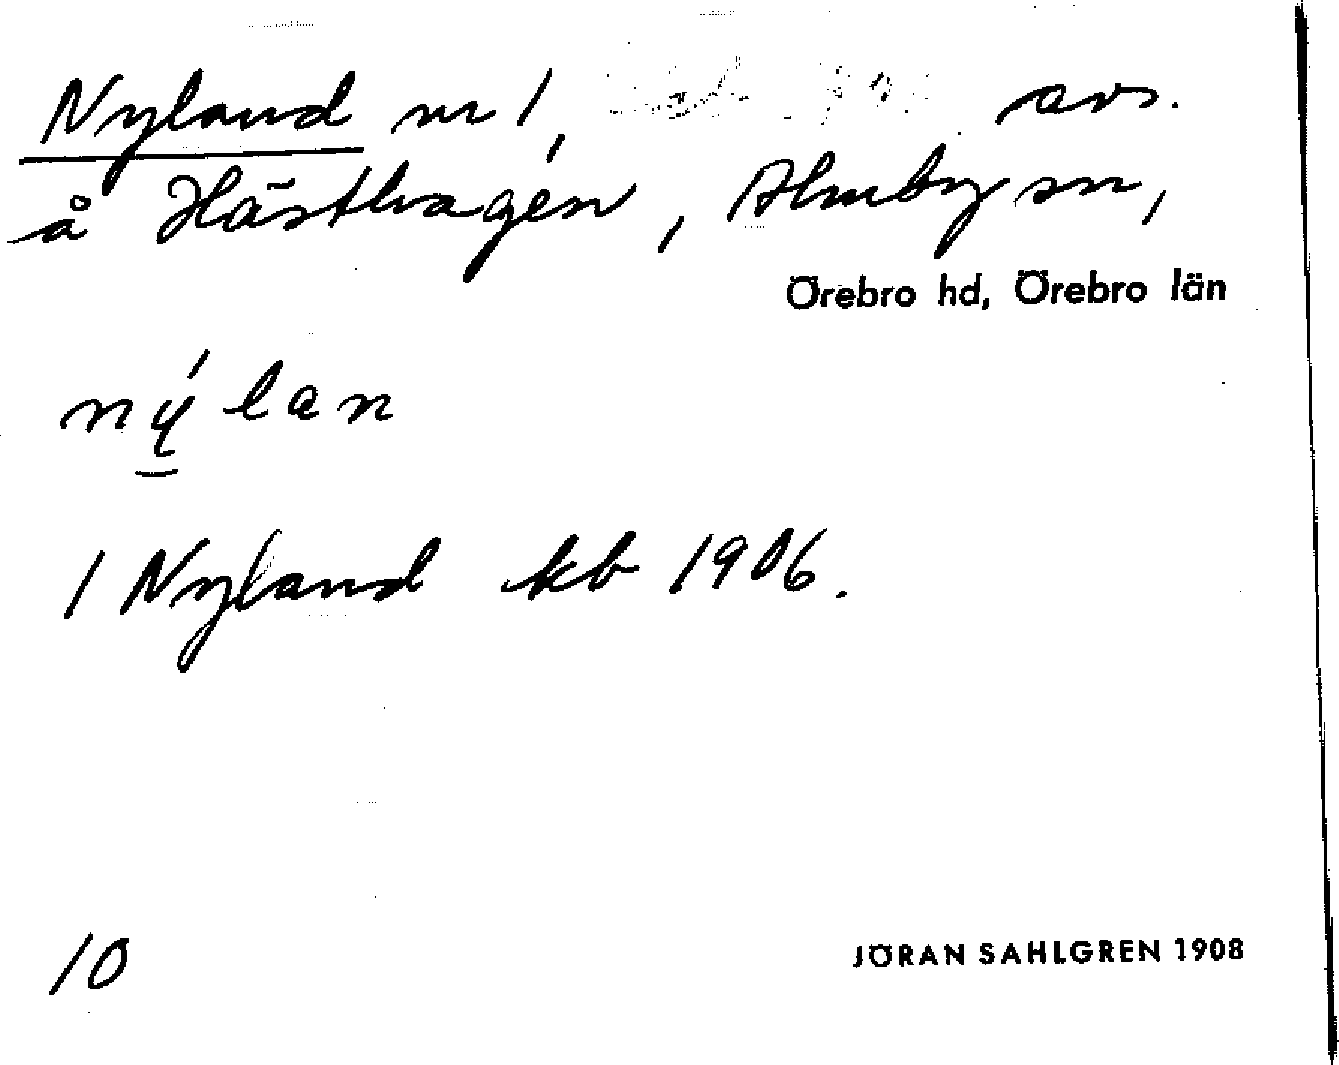 Nyland nr 1, avs.
å Hästhagen, Almby sn,
Örebro hd, Örebro län
nýlan
1 Nyland kb 1906.
10
JÖRAN SAHLGREN 1908